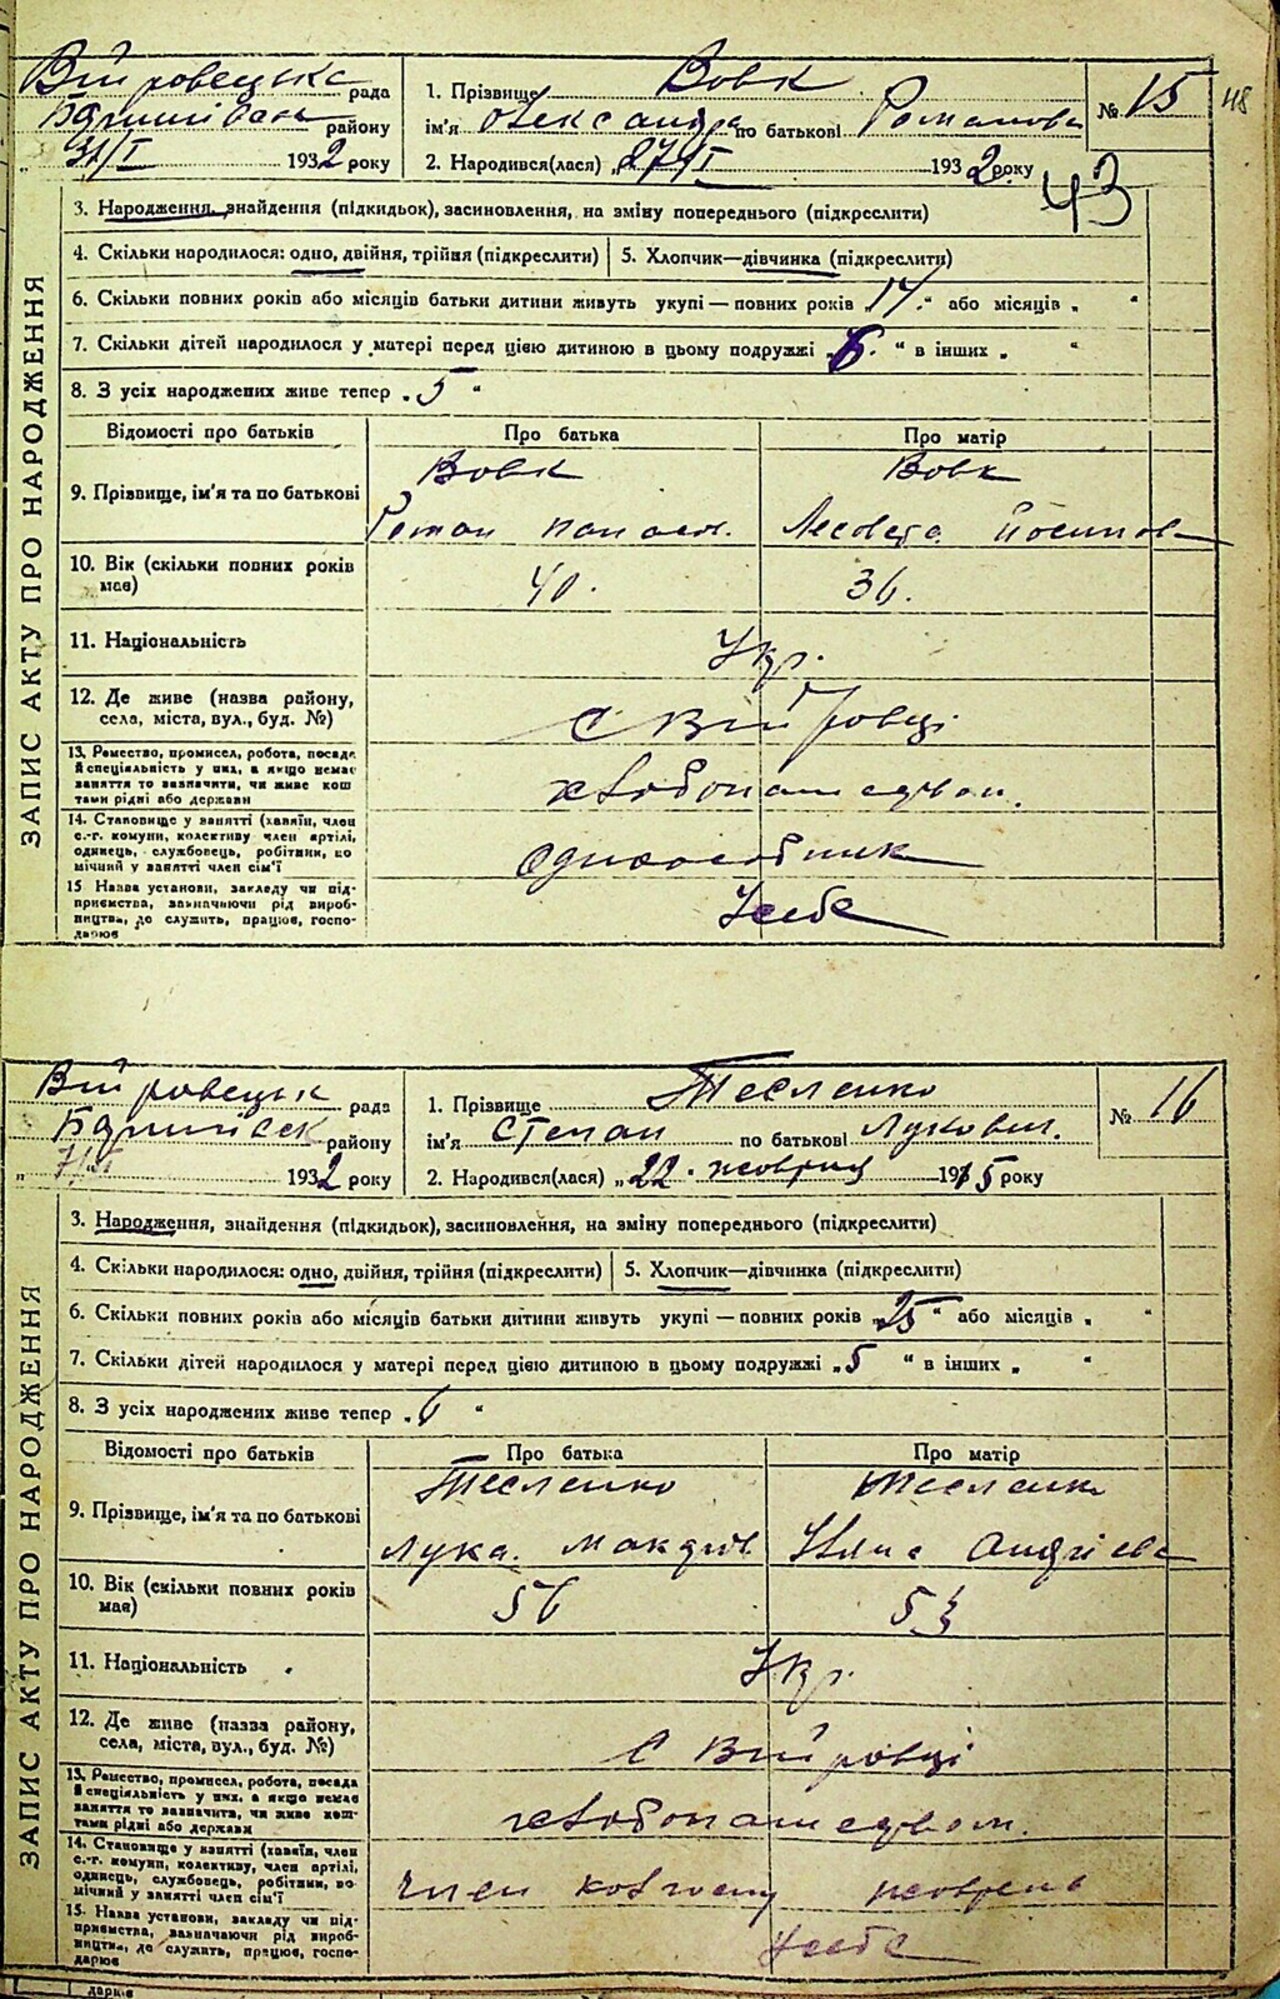 Війровецька рада
району
31/I 1932 року
1. Прізвище Вовк
ім'я Олександра по батькові Романова
2. Народився(лася) „27/I 1932 року
№ 15
118
43
ЗАПИС АКТУ ПРО НАРОДЖЕННЯ
3. Народження, знайдення (підкидьок), засиновлення, на зміну попереднього (підкреслити)
4. Скільки народилося: одно, двійня, трійня (підкреслити) 5. Хлопчик—дівчинка (підкреслити)
6. Скільки повних років або місяців батьки дитини живуть укупі — повних років „17." або місяців „ "
7. Скільки дітей народилося у матері перед цією дитиною в цьому подружжі „6." в інших „ "
8. З усіх народжених живе тепер „5"
Відомості про батьків Про батька Про матір
9. Прізвище, ім'я та по батькові
Вовк Вовк
Роман Панасов. Йосипов
10. Вік (скільки повних років має)
40. 36.
11. Національність
Укр.
12. Де живе (назва району,
села, міста, вул., буд. №)
С Війровці
13. Ремество, промисел, робота, посада
й спеціальність у них, а якщо немає
заняття то зазначити, чи живе кош
тами рідні або держави
хлібороб
14. Становище у занятті (хазяїн, член
с.-г. комуни, колективу член артілі,
одинець, службовець, робітник, по
мічний у занятті член сім'ї
Одноосібник
15 Назва установи, закладу чи під-
приємства, зазначаючи рід вироб-
ництва, де служить, працює, госпо-
дарює
У себе
Війровецьк рада
району
7/II 1932 року
1. Прізвище Тесленко
ім'я Степан по батькові Лукович.
2. Народився(лася) „22. жовтня 1915 року
№ 16
ЗАПИС АКТУ ПРО НАРОДЖЕННЯ
3. Народження, знайдення (підкидьок), засиновлення, на зміну попереднього (підкреслити)
4. Скільки народилося: одно, двійня, трійня (підкреслити) 5. Хлопчик—дівчинка (підкреслити)
6. Скільки повних років або місяців батьки дитини живуть укупі — повних років „25" або місяців „ "
7. Скільки дітей народилося у матері перед цією дитиною в цьому подружжі „5 " в інших „ "
8. З усіх народжених живе тепер „6 "
Відомості про батьків Про батька Про матір
9. Прізвище, ім'я та по батькові
Тесленко Тесленко
Лука. Уляна Андрієва
10. Вік (скільки повних років має)
56
11. Національність
Укр.
12. Де живе (назва району,
села, міста, вул., буд. №)
С Війровці
13. Ремество, промисел, робота, посада
й спеціальність у них, а якщо немає
заняття то зазначити, чи живе кош-
тами рідні або держави
14. Становище у занятті (хазяїн, член
с.-г. комуни, колективу, член артілі,
одинець, службовець, робітник, по-
мічний у занятті член сім'ї
член колгоспу
15. Назва установи, закладу чи під-
приємства, зазначаючи рід вироб-
ництва, де служить, працює, госпо-
дарює
У себе
дарює